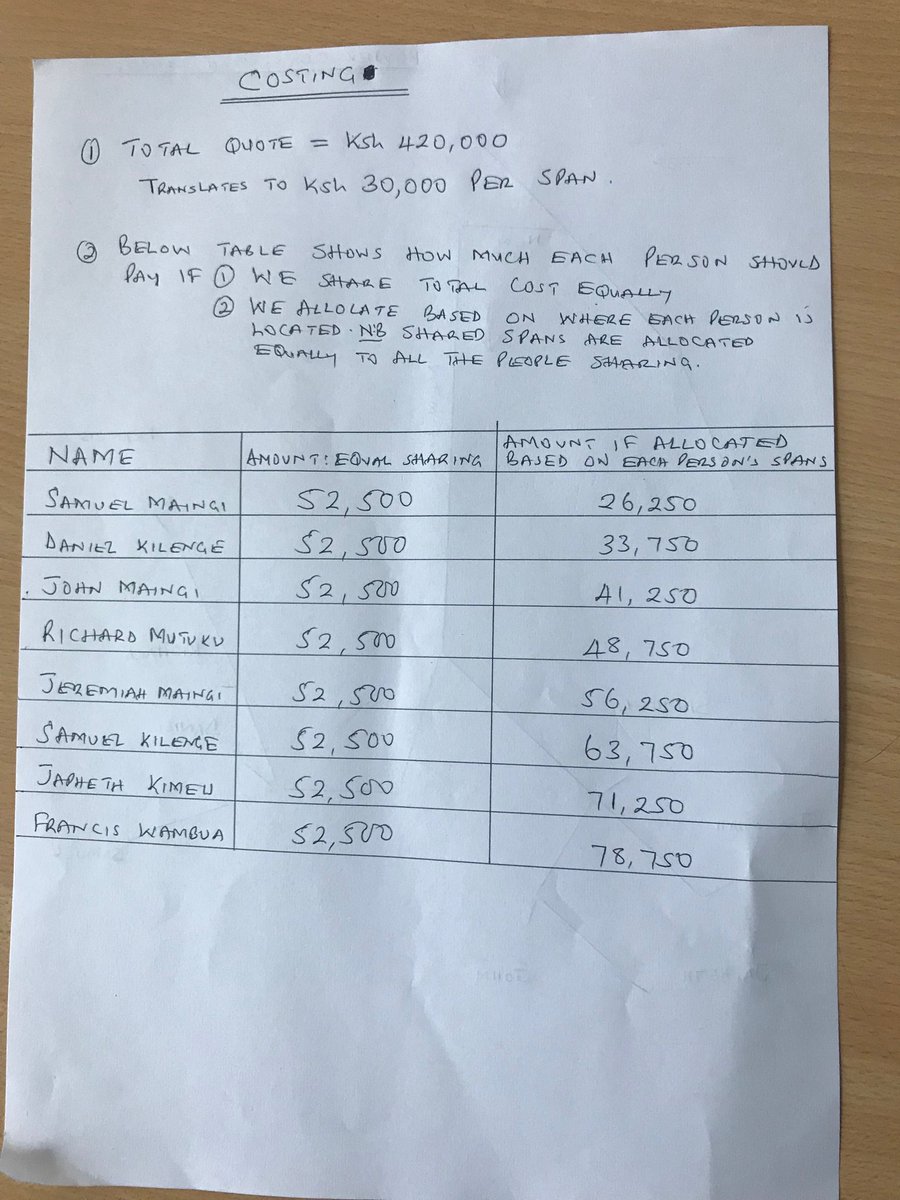 COSTING
① TOTAL QUOTE = Ksh 420,000
TRANSLATES TO Ksh 30,000 PER SPAN.
② BELOW TABLE SHOWS HOW MUCH EACH PERSON SHOULD
PAY IF ① WE SHARE TOTAL COST EQUALLY
② WE ALLOLATE BASED ON WHERE EACH PERSON IS
LOCATED. N.B SHARED SPANS ARE ALLOCATED
EQUALLY TO ALL THE PEOPLE SHARING.
NAME AMOUNT: EQUAL SHARING AMOUNT IF ALLOCATED
BASED ON EACH PERSON'S SPANS
SAMUEL MAINGI 52,500 26,250
DANIEL KILENGE 52,500 33,750
JOHN MAINGI 52,500 41,250
RICHARD MUTUKU 52,500 48,750
JEREMIAH MAINGI 52,500 56,250
SAMUEL KILENGE 52,500 63,750
JAPHETH KIMEU 52,500 71,250
FRANCIS WAMBUA 52,500 78,750